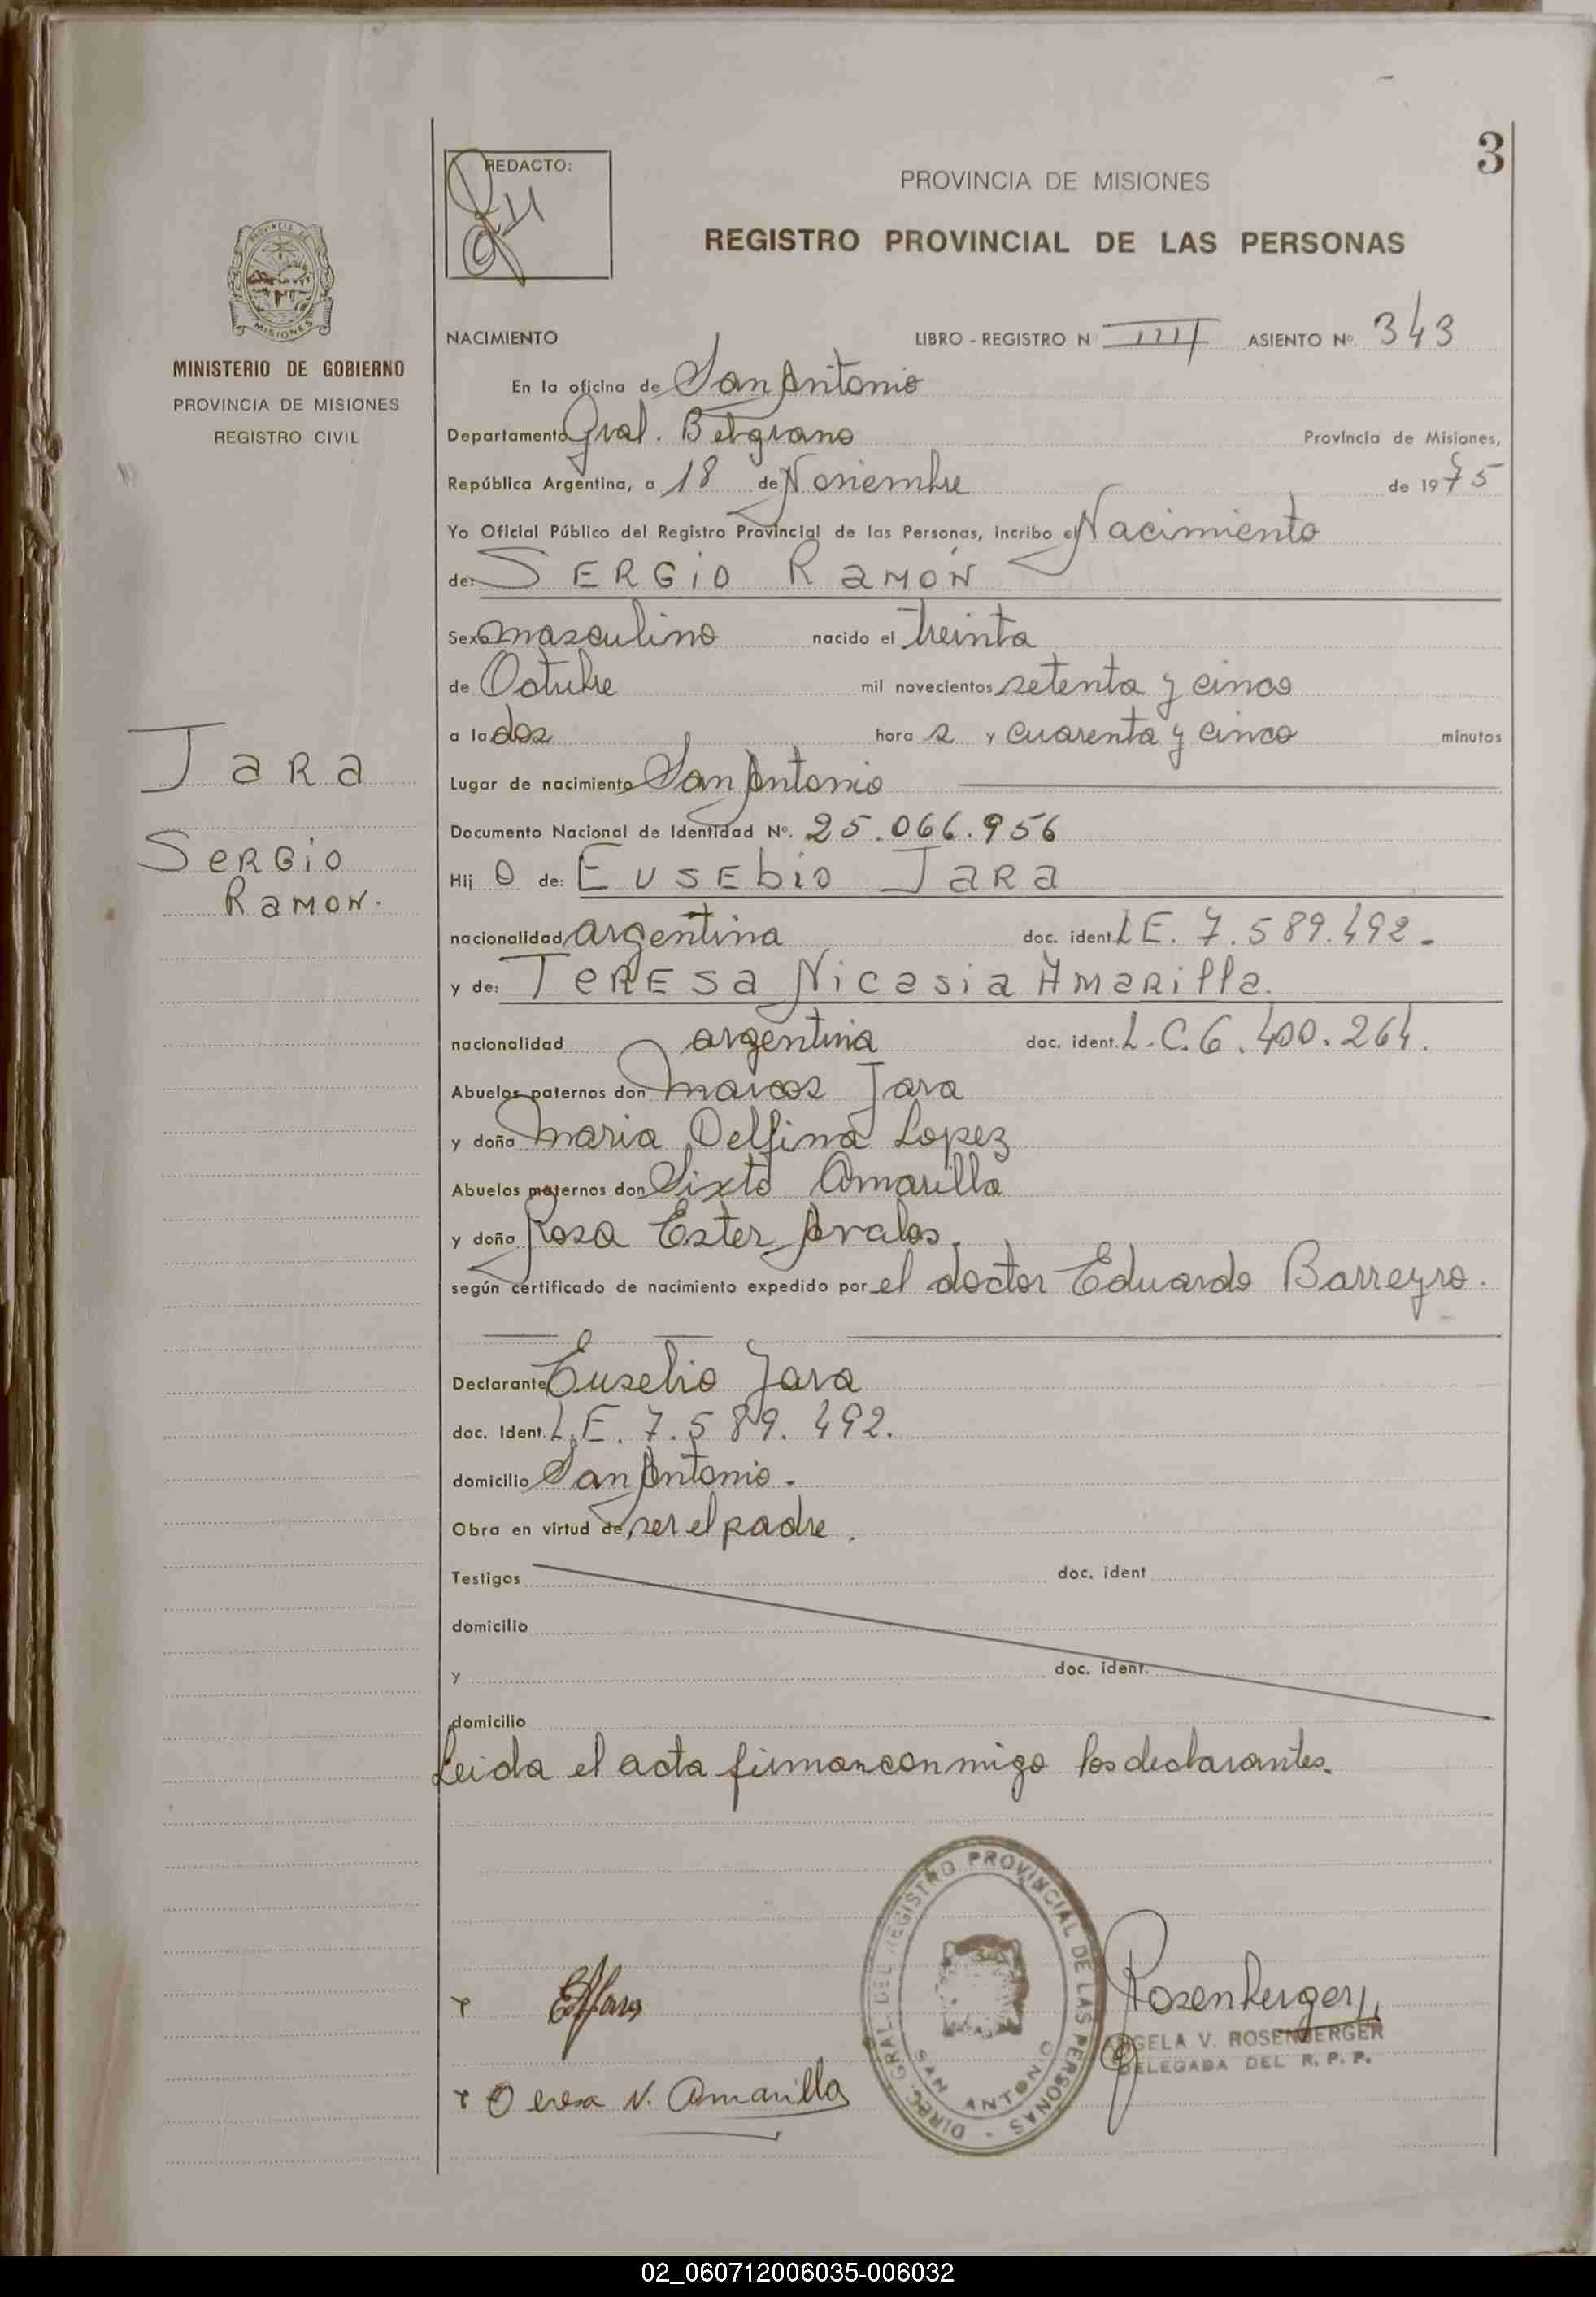 3
REDACTO:
PROVINCIA DE MISIONES
REGISTRO PROVINCIAL DE LAS PERSONAS
PROVINCIA DE
MISIONES
MINISTERIO DE GOBIERNO
PROVINCIA DE MISIONES
REGISTRO CIVIL
NACIMIENTO LIBRO - REGISTRO N IIII ASIENTO Nº 343
En la oficina de San Antonio
Departamento Gral. Belgrano Provincia de Misiones,
República Argentina, a 18 de Noviembre de 1975
Yo Oficial Público del Registro Provincial de las Personas, incribo el Nacimiento
de: SERGIO RAMÓN
Sexo masculino nacido el treinta
de Octubre mil novecientos setenta y cinco
a la dos hora s y cuarenta y cinco minutos
Jara
Lugar de nacimiento San Antonio
Documento Nacional de Identidad Nº. 25.066.956
Sergio
Ramon.
Hij o de: Eusebio Jara
nacionalidad argentina doc. ident. L.E. 7.589.492.-
y de: Teresa Nicasia Amarilla.
nacionalidad argentina doc. ident. L.C. 6.400.264.
Abuelos paternos don Marcos Jara
y doña Maria Delfina Lopez
Abuelos maternos don Sixto Amarilla
y doña Rosa Ester Avalos.
según certificado de nacimiento expedido por el doctor Eduardo Barreyro.
Declarante Eusebio Jara
doc. Ident. L.E. 7.589.492.
domicilio San Antonio.
Obra en virtud de ser el padre.
Testigos doc. ident
domicilio
y doc. ident.
domicilio
Leida el acta firman conmigo los declarantes.
DIREC. GRAL. DEL REGISTRO PROVINCIAL DE LAS PERSONAS
SAN ANTONIO
EJara
Teresa N. Amarilla
Rosenberger
ANGELA V. ROSENBERGER
DELEGADA DEL R. P. P.
02_060712006035-006032